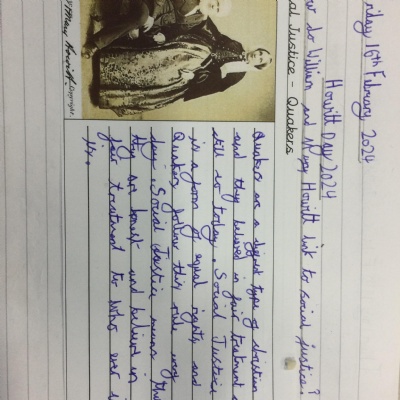 Friday 16th February 2024
Howitt Day 2024
How do William and Mary Howitt link to social justice?
Social Justice - Quakers
Quakers are a different type of christian
and they believe in fair treatment
still so today. Social Justice
is a form of equal rights and
Quakers follow this rule every
day. Social Justice means that
they are honest and believe in
fair treatment to who ever
Mary Howitt. Copyright